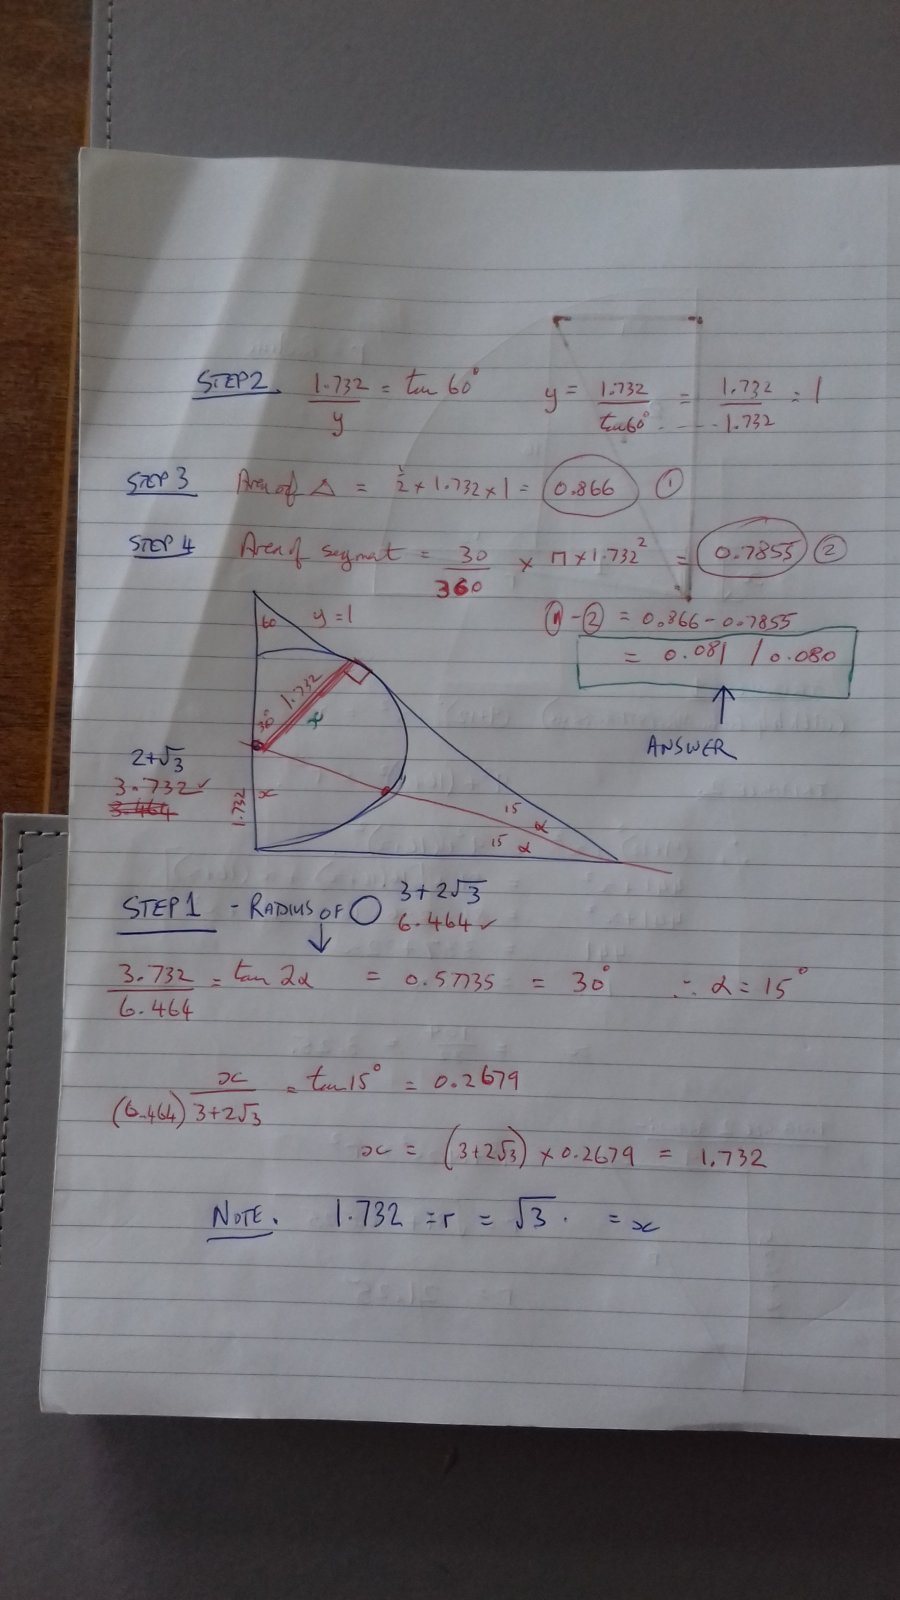 STEP 2. 1.732/y = tan 60° y = 1.732/tan60° = 1.732/1.732 = 1
STEP 3 Area of △ = ½ × 1.732 × 1 = 0.866 ①
STEP 4 Area of segmat = 30/360 × π × 1.732² = 0.7855 ②
① - ② = 0.866 - 0.7855
= 0.081 / 0.080
ANSWER
60 y = 1
1.732
30° x
2+√3
3.732 ✓
3.464
1.732 x
15 α
15 α
STEP 1 - RADIUS OF ◯ 3+2√3
6.464 ✓
3.732/6.464 = tan 2α = 0.57735 = 30° ∴ α = 15°
(6.464) x/3+2√3 = tan 15° = 0.2679
x = (3+2√3) × 0.2679 = 1.732
NOTE. 1.732 = r = √3. = x